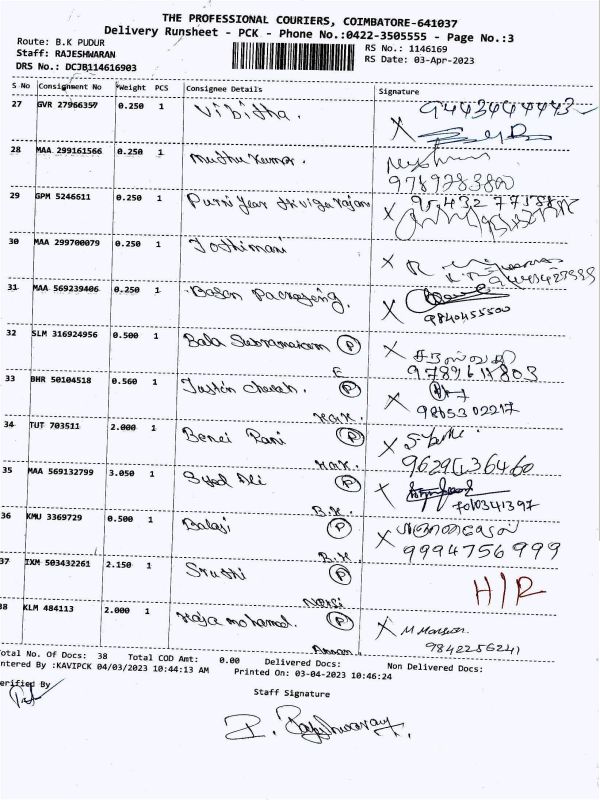 THE PROFESSIONAL COURIERS, COIMBATORE-641037
Delivery Runsheet - PCK - Phone No.:0422-3505555 - Page No.:3
Route: B.K PUDUR
RS No.: 1146169
Staff: RAJESHWARAN
RS Date: 03-Apr-2023
DRS No.: DCJB114616903
S No Consignment No Weight PCS Consignee Details Signature
27 GVR 27966357 0.250 1 Vibitha. 9443444443
28 MAA 299161566 0.250 1 Muthu Kumar.
9789283800
29 GPM 5246611 0.250 1
30 MAA 299700079 0.250 1 Jothimani
31 MAA 569239406 0.250 1
9840455500
32 SLM 316924956 0.500 1 Bala P
சரஸ்வதி
E 9789611803
33 BHR 50104518 0.560 1 P
9865302217
34 TUT 703511 2.000 1 Rani P
9629136460
35 MAA 569132799 3.050 1 Syed Ali P
7010341397
B.K.
36 KMU 3369729 0.500 1 Balaji P
9994756999
B.K.
37 IXM 503432261 2.150 1 Sruthi P
H/R
38 KLM 484113 2.000 1 Raja mohamed. P
9842256241
Total No. Of Docs: 38 Total COD Amt: 0.00 Delivered Docs: Non Delivered Docs:
Entered By :KAVIPCK 04/03/2023 10:44:13 AM Printed On: 03-04-2023 10:46:24
Verified By
Staff Signature